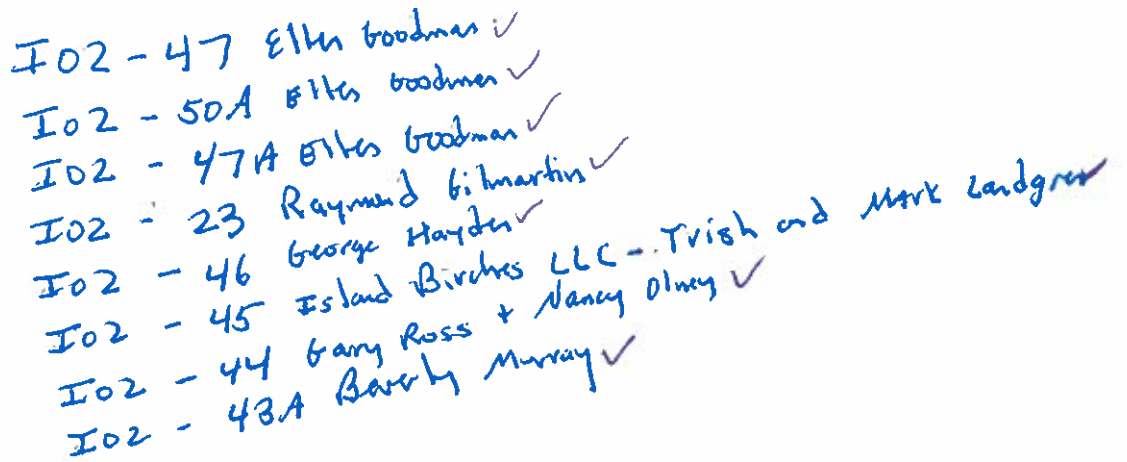 I02 - 47 Ellen Goodman ✓
I02 - 50A Ellen Goodman ✓
I02 - 47A Ellen Goodman ✓
I02 - 23 Raymond Gilmartin ✓
I02 - 46 George Hayden ✓
I02 - 45 Island Birches LLC - Trish and Mark Landgren ✓
I02 - 44 Gary Ross + Nancy Olney ✓
I02 - 43A Beverly Murray ✓